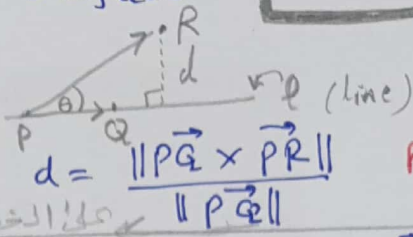 R
d
θ
ℓ (line)
P
Q
d = ||PQ⃗ × PR⃗|| / ||PQ⃗||